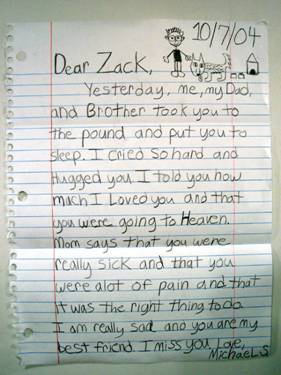 10/7/04
Dear Zack,
Yesterday, me, my Dad,
and Brother took you to
the pound and put you to
sleep. I cried so hard and
Hugged you. I told you how
mach I Loved you and that
you were going to Heaven.
Mom says that you were
really sick and that you
were alot of pain and that
it was the right thing to do
I am really sad and you are my
best friend. I miss you. Love,
Michael. S